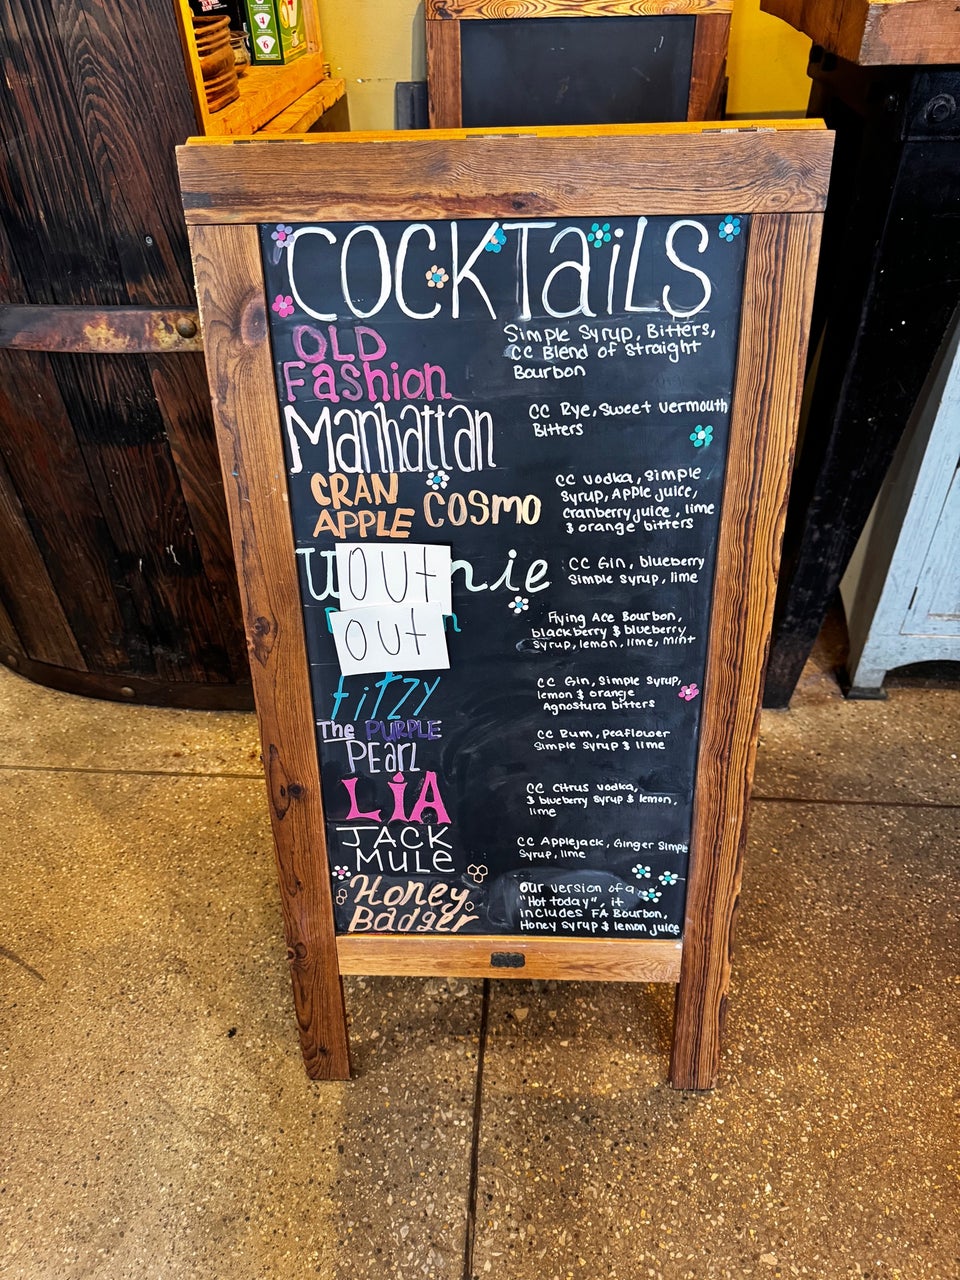 COCKTaiLS
OLD
Fashion
Simple Syrup, Bitters,
CC Blend of Straight
Bourbon
Manhattan
CC Rye, Sweet vermouth
Bitters
CRAN
APPLE COSMO
CC vodka, simple
syrup, Apple juice,
cranberry juice, lime
& orange bitters
OUt
CC Gin, blueberry
Simple syrup, lime
OUt
Flying Ace Bourbon,
blackberry & blueberry
syrup, lemon, lime, mint
fitzy
CC Gin, Simple Syrup,
lemon & orange
Agnostura bitters
The PURPLE
PEarl
CC Rum, Peaflower
Simple Syrup & lime
LiA
CC citrus vodka,
& blueberry syrup & lemon,
lime
JACK
MULe
CC Applejack, Ginger Simple
Syrup, lime
Honey
Badger
our version of a
"Hot today", it
includes FA Bourbon,
Honey syrup & lemon juice